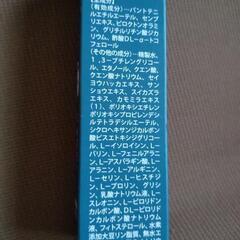 【全成分】
(有効成分)…パントテニ
ルエチルエーテル、センブ
リエキス、ピロクトンオラミ
ン、グリチルリチン酸ジカ
リウム、酢酸DL-α-トコ
フェロール
(その他の成分)…精製水、
1，3-ブチレングリコー
ル、エタノール、クエン酸、
クエン酸ナトリウム、セイ
ヨウハッカエキス、サン
ショウエキス、スイカズラ
エキス、カモミラエキス(1)
、ポリオキシエチレン
ポリオキシプロピレンデシ
ルテトラデシルエーテル、
シクロヘキサンジカルボン
酸ビスエトキシジグリコー
ル、L-イソロイシン、L-
バリン、L-フェニルアラニ
ン、L-アスパラギン酸、L-
アラニン、L-アルギニン、
L-セリン、L-ヒスチジ
ン、L-プロリン、グリシ
ン、乳酸ナトリウム液、
L-スレオニン、L-ピロリドン
カルボン酸、DL-ピロリド
ンカルボン酸ナトリウム
液、フィトステロール、水素
添加大豆リン脂質、無水エ